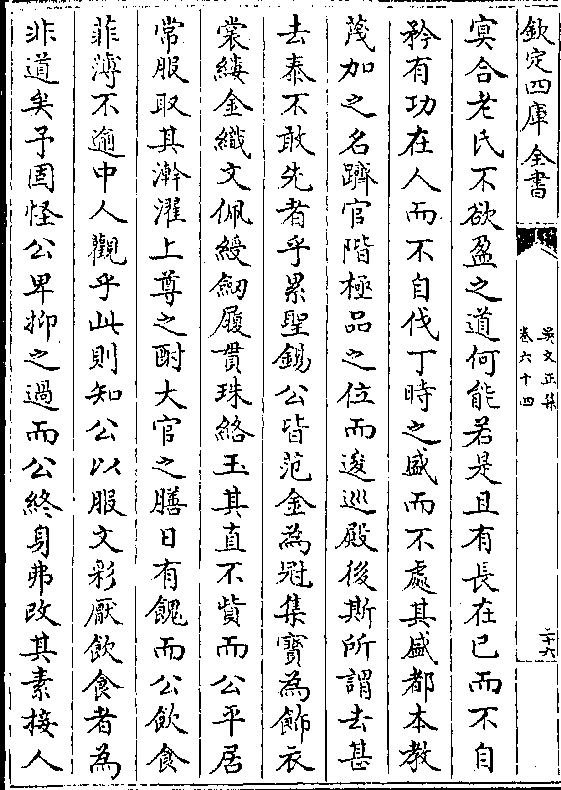 欽定四庫全書
吳文正集
卷六十四
二十六
㝠合老氏不欲盈之道何能若是且有長在已而不自
矜有功在人而不自伐丁時之盛而不處其盛都本教
茂加之名躋官階極品之位而逡巡殿後斯所謂去甚
去泰不敢先者乎累聖錫公皆范金為冠集寳為飾衣
裳縷金織文佩綬劒履貫珠絡玉其直不貲而公平居
常服取其澣濯上尊之酎大官之膳日有餽而公飲食
菲薄不逾中人觀乎此則知公以服文彩厭飲食者為
非道矣予固怪公卑抑之過而公終身弗改其素接人